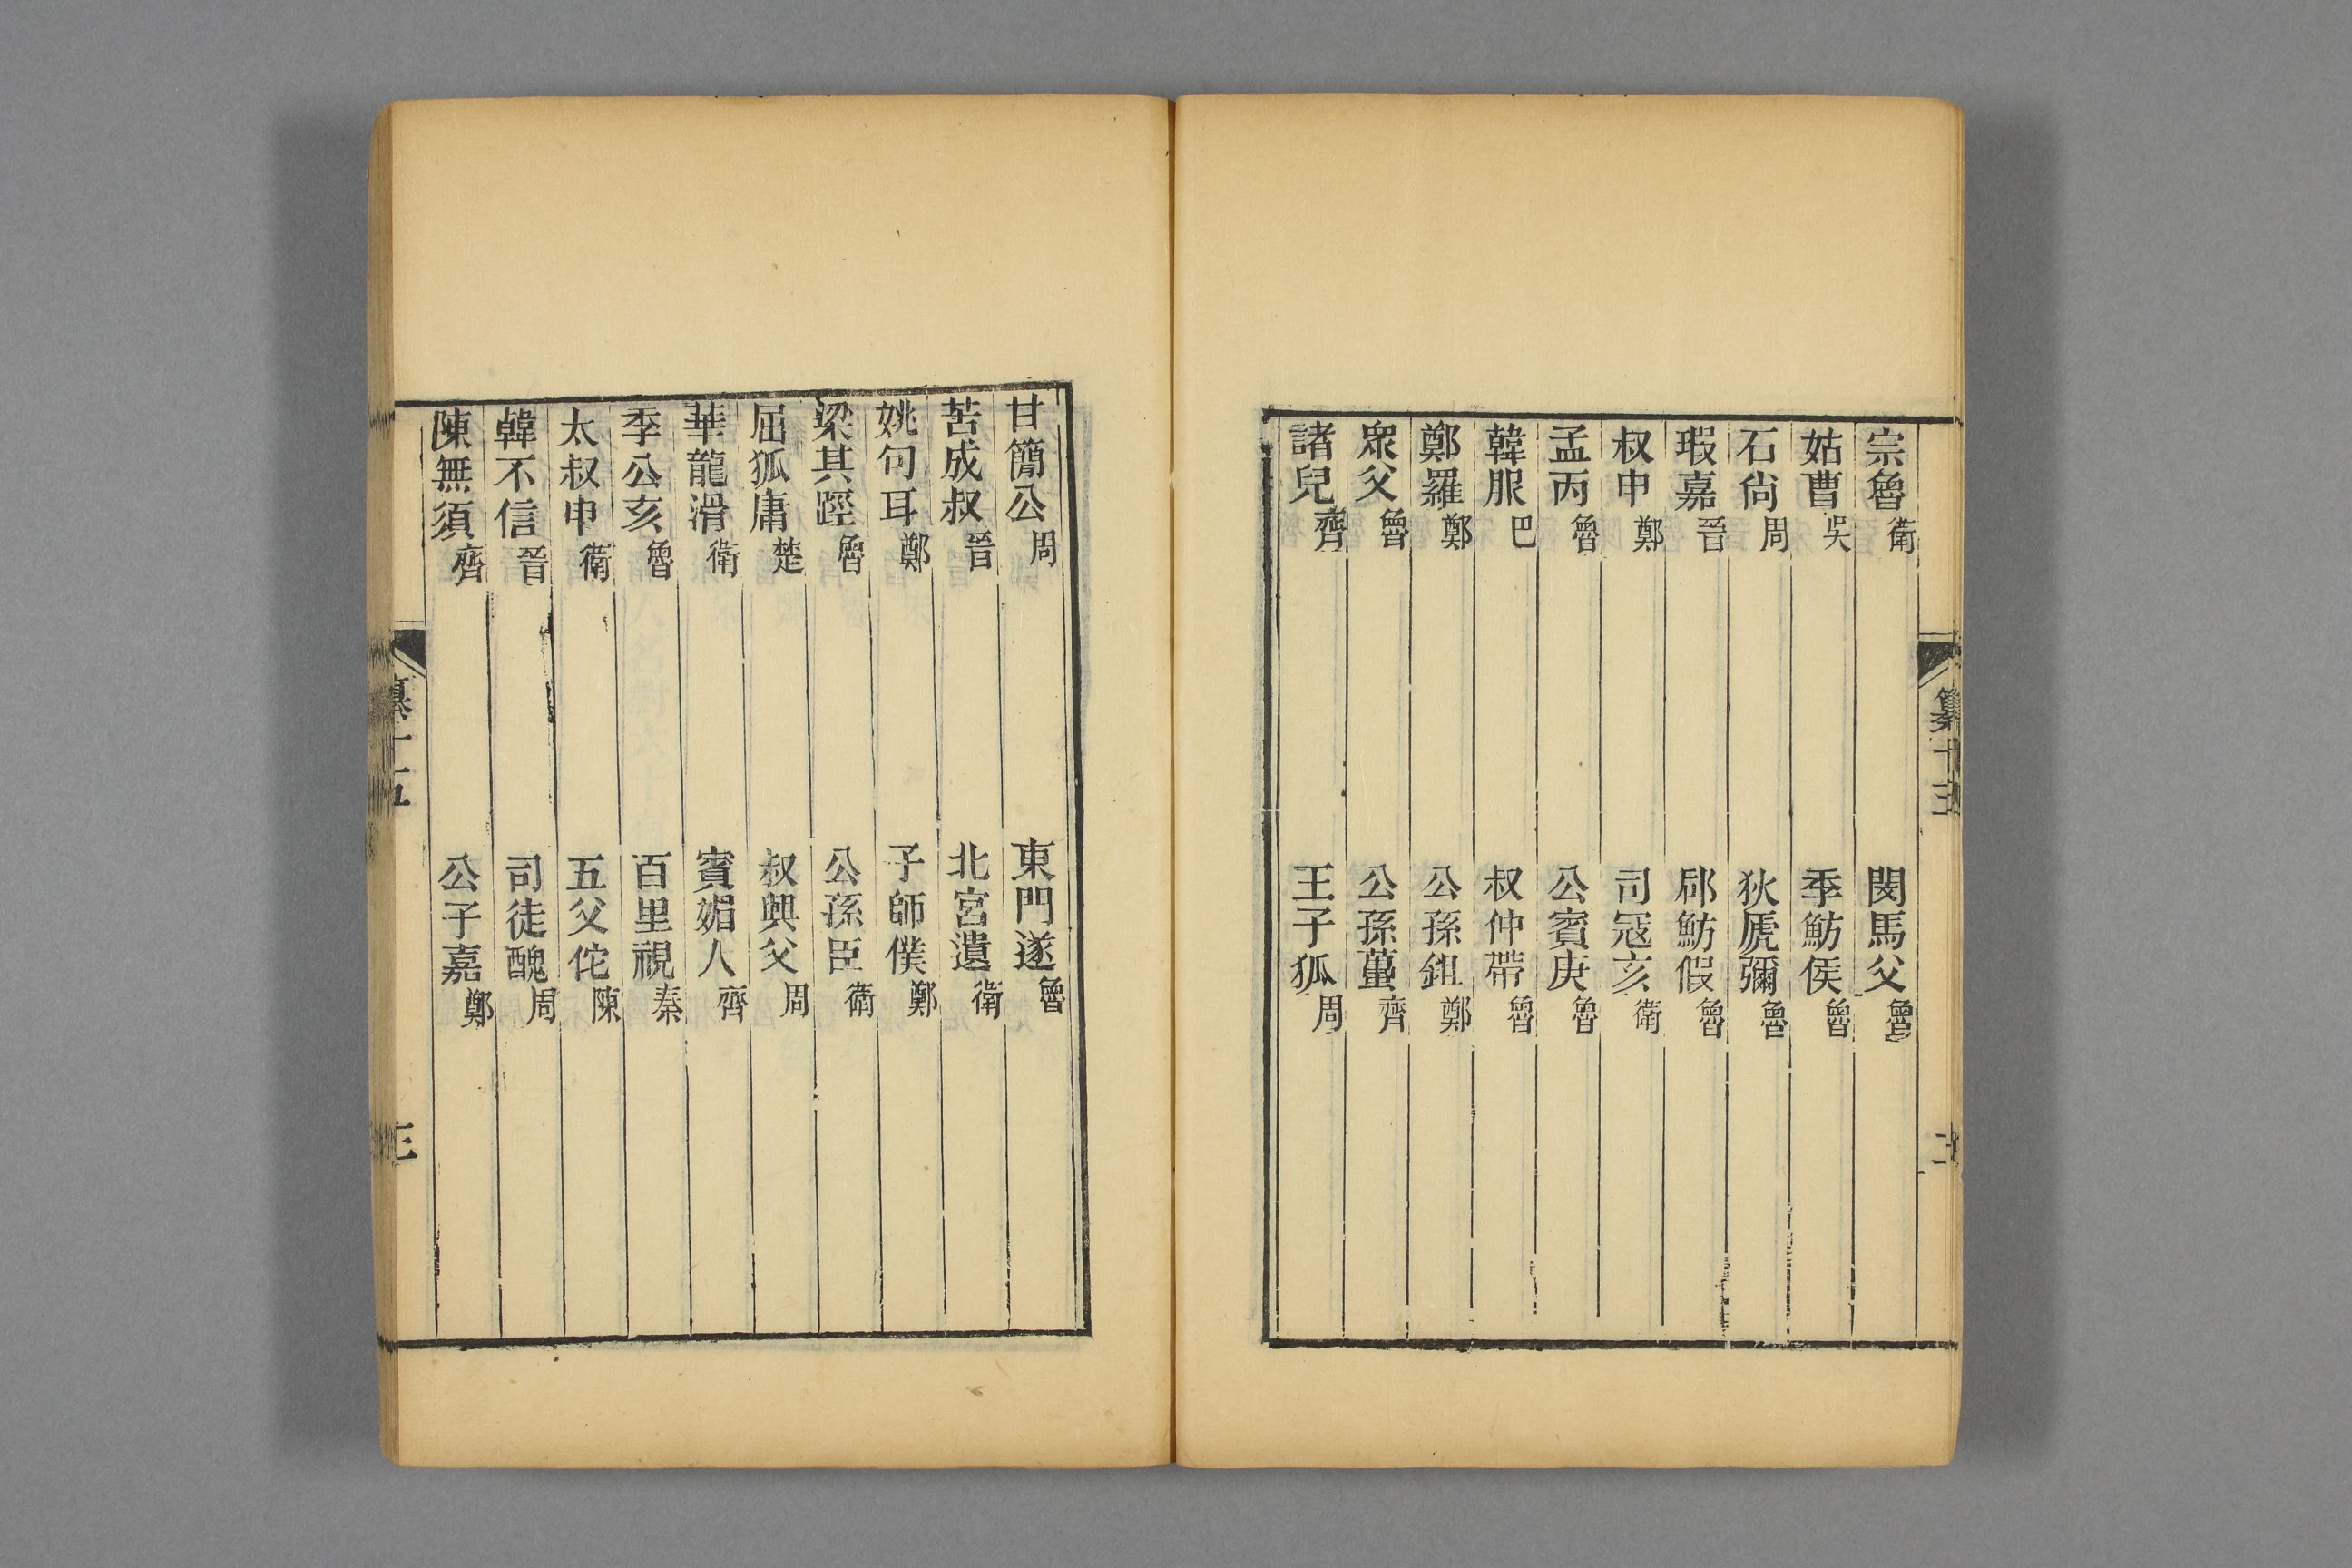 宗魯衛　閔馬父魯
姑曹吳　季魴侯魯
石尙周　狄虒彌魯
瑕嘉晉　郈魴假魯
叔申鄭　司冦亥衛
孟丙魯　公賓庚魯
韓服巴　叔仲帶魯
鄭羅鄭　公孫鉏鄭
衆父魯　公孫蠆齊
諸兒齊　王子狐周
纂十五
甘簡公周　東門遂魯
苦成叔晉　北宮遺衛
姚句耳鄭　子師僕鄭
梁其踁魯　公孫臣衛
屈狐庸楚　叔興父周
華龍滑衛　賓媚人齊
季公亥魯　百里視秦
太叔申衛　五父佗陳
韓不信晉　司徒醜周
陳無須齊　公子嘉鄭
纂十五　三